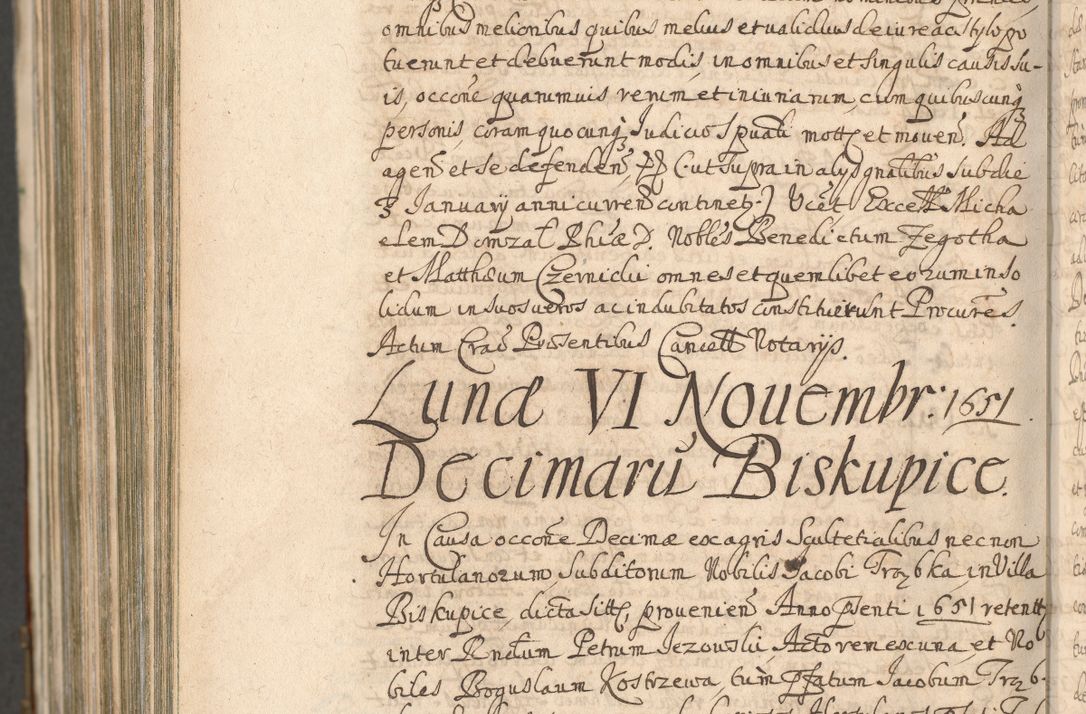 omnibus melioribus quibus melius et validius de iure ac stylo po
tuerunt et debuerunt modis, in omnibus et singulis causis su-
is, occoñe quarumuis rerum et iniuriarum, cum quibuscunq
personis, coram quocunq Judicio Spuali mott et mouen. Ad
agen et se defenden, Ut supra in alys gnalibus sub die
3 January anni curren continet. Ucet Excell Micha
elem Domzal Phiæ D. Nobles Benedictum Zegotha
et Matthæum Czernicki omnes et quemlibet eorum in so
lidum in suos veros ac indubitatos constituerunt Procures.
Actum Crac Præsentibus Cancell Notarijs.
Lunæ VI Nouembr: 1651.
Decimarū Biskupice.
In Causa occoñe Decimæ ex agris Scultetialibus necnon
Hortulanorum subditorum Nobilis Jacobi Trzbka in Villa
Biskupice, dicta sitt, prouenien Anno Pnti 1651 retent
inter Rndum Petrum Jezowski, Actorem ex una, et No
biles Boguslaum Kostrzewa, tum Pfatum Jacobum Trzb-